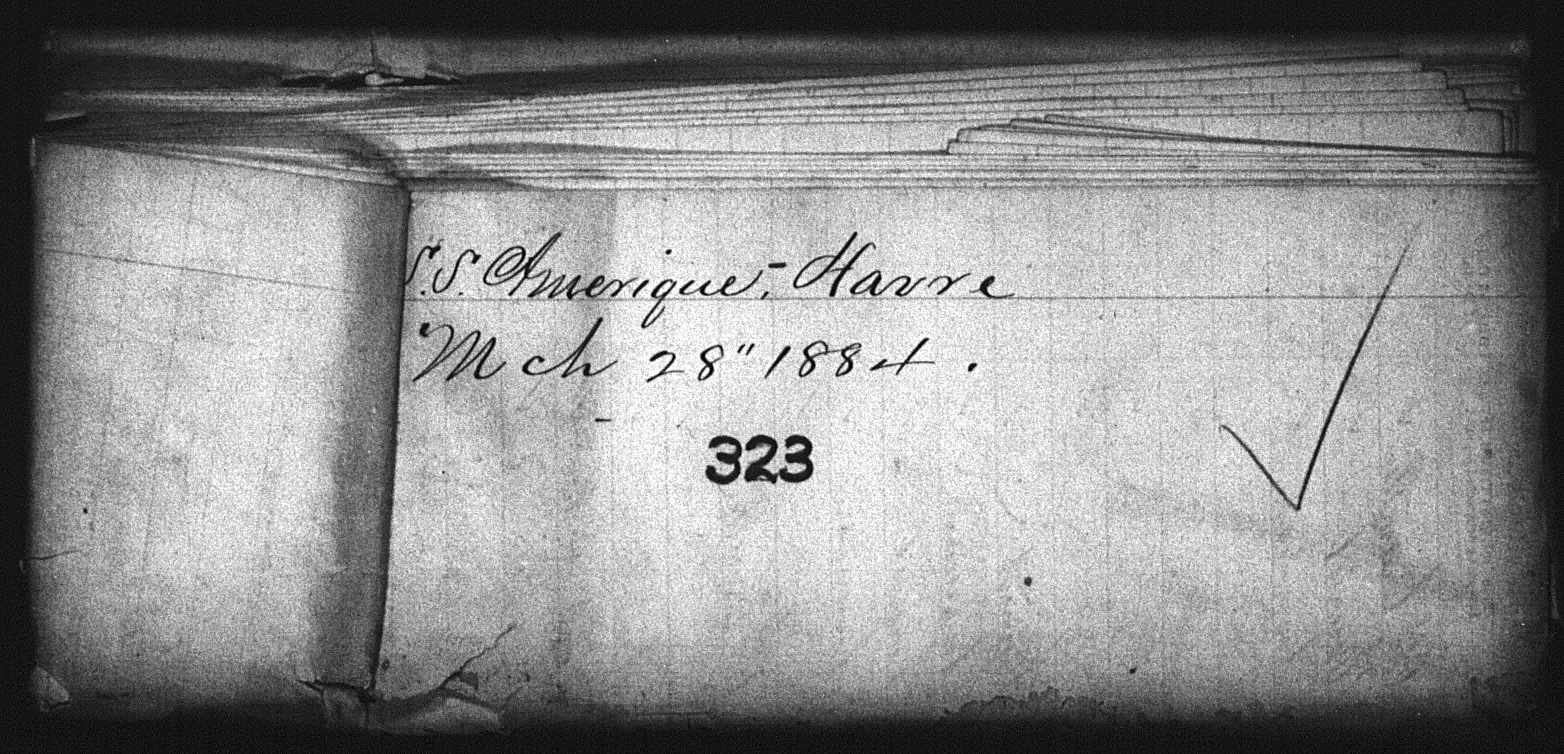 S.S. Amerique, - Havre
Mch 28" 1884.
323